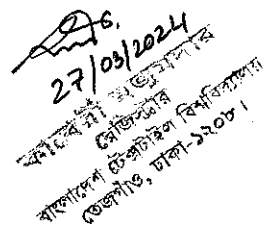 27/03/2024
কাবেরী মজুমদার
রেজিস্ট্রার
বাংলাদেশ টেক্সটাইল বিশ্ববিদ্যালয়
তেজগাঁও, ঢাকা-১২০৮।